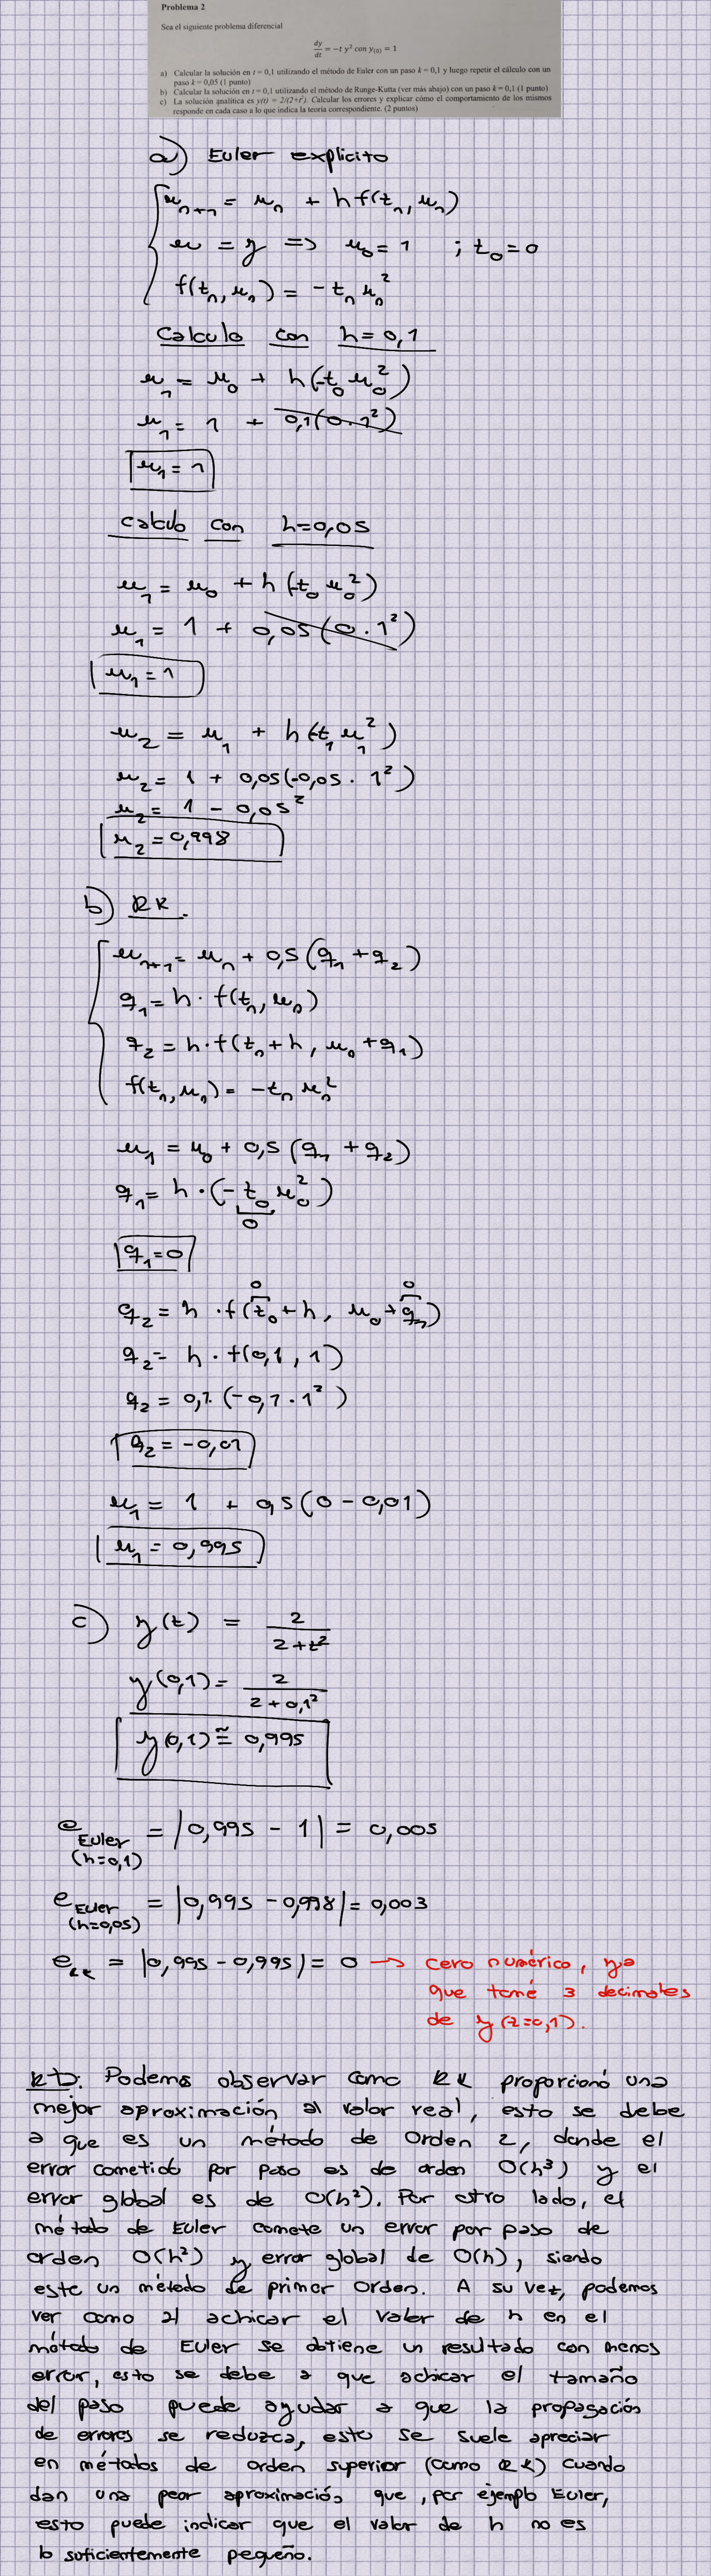 Problema 2
Sea el siguiente problema diferencial
dy/dt = -t y² con y(0) = 1
a) Calcular la solución en t = 0,1 utilizando el método de Euler con un paso k = 0,1 y luego repetir el cálculo con un
paso k = 0,05 (1 punto)
b) Calcular la solución en t = 0,1 utilizando el método de Runge-Kutta (ver más abajo) con un paso k = 0,1 (1 punto)
c) La solución analítica es y(t) = 2/(2+t²). Calcular los errores y explicar cómo el comportamiento de los mismos
responde en cada caso a lo que indica la teoría correspondiente. (2 puntos)
a) Euler explicito
u_{n+1} = u_n + h f(t_n, u_n)
u = y => u_0 = 1 ; t_0 = 0
f(t_n, u_n) = -t_n u_n²
Calculo con h=0,1
u_1 = u_0 + h(-t_0 u_0²)
u_1 = 1 + 0,1(0·1²)
u_1 = 1
calculo con h=0,05
u_1 = u_0 + h(-t_0 u_0²)
u_1 = 1 + 0,05(0·1²)
u_1 = 1
u_2 = u_1 + h(-t_1 u_1²)
u_2 = 1 + 0,05(-0,05 · 1²)
u_2 = 1 - 0,05²
u_2 = 0,998
b) RK.
u_{n+1} = u_n + 0,5(q_1 + q_2)
q_1 = h · f(t_n, u_n)
q_2 = h · f(t_n + h, u_n + q_1)
f(t_n, u_n) = -t_n u_n²
u_1 = u_0 + 0,5(q_1 + q_2)
q_1 = h · (-t_0 u_0²)
0
q_1 = 0
0 0
q_2 = h · f(t_0 + h, u_0 + q_1)
q_2 = h · f(0,1, 1)
q_2 = 0,1 · (-0,1 · 1²)
q_2 = -0,01
u_1 = 1 + 0,5(0 - 0,01)
u_1 = 0,995
c) y(t) = 2/(2+t²)
y(0,1) = 2/(2+0,1²)
y(0,1) ≅ 0,995
e_Euler (h=0,1) = |0,995 - 1| = 0,005
e_Euler (h=0,05) = |0,995 - 0,998| = 0,003
e_RK = |0,995 - 0,995| = 0 → cero numérico, ya
que tomé 3 decimales
de y(t=0,1).
Rta: Podemos observar como RK proporcionó una
mejor aproximación al valor real, esto se debe
a que es un método de Orden 2, donde el
error cometido por paso es de orden O(h³) y el
error global es de O(h²). Por otro lado, el
método de Euler comete un error por paso de
orden O(h²) y error global de O(h), siendo
este un método de primer orden. A su vez, podemos
ver como al achicar el valor de h en el
método de Euler se obtiene un resultado con menos
error, esto se debe a que achicar el tamaño
del paso puede ayudar a que la propagación
de errores se reduzca, esto se suele apreciar
en métodos de orden superior (como RK) cuando
dan una peor aproximación que, por ejemplo Euler,
esto puede indicar que el valor de h no es
lo suficientemente pequeño.